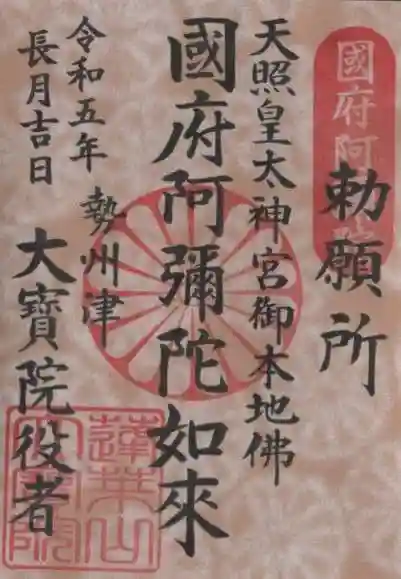 國府阿
勅願所
天照皇太神宮御本地佛
國府阿彌陀如來
勢州津
大寶院役者
令和五年
長月吉日
蓮華山
大寶院